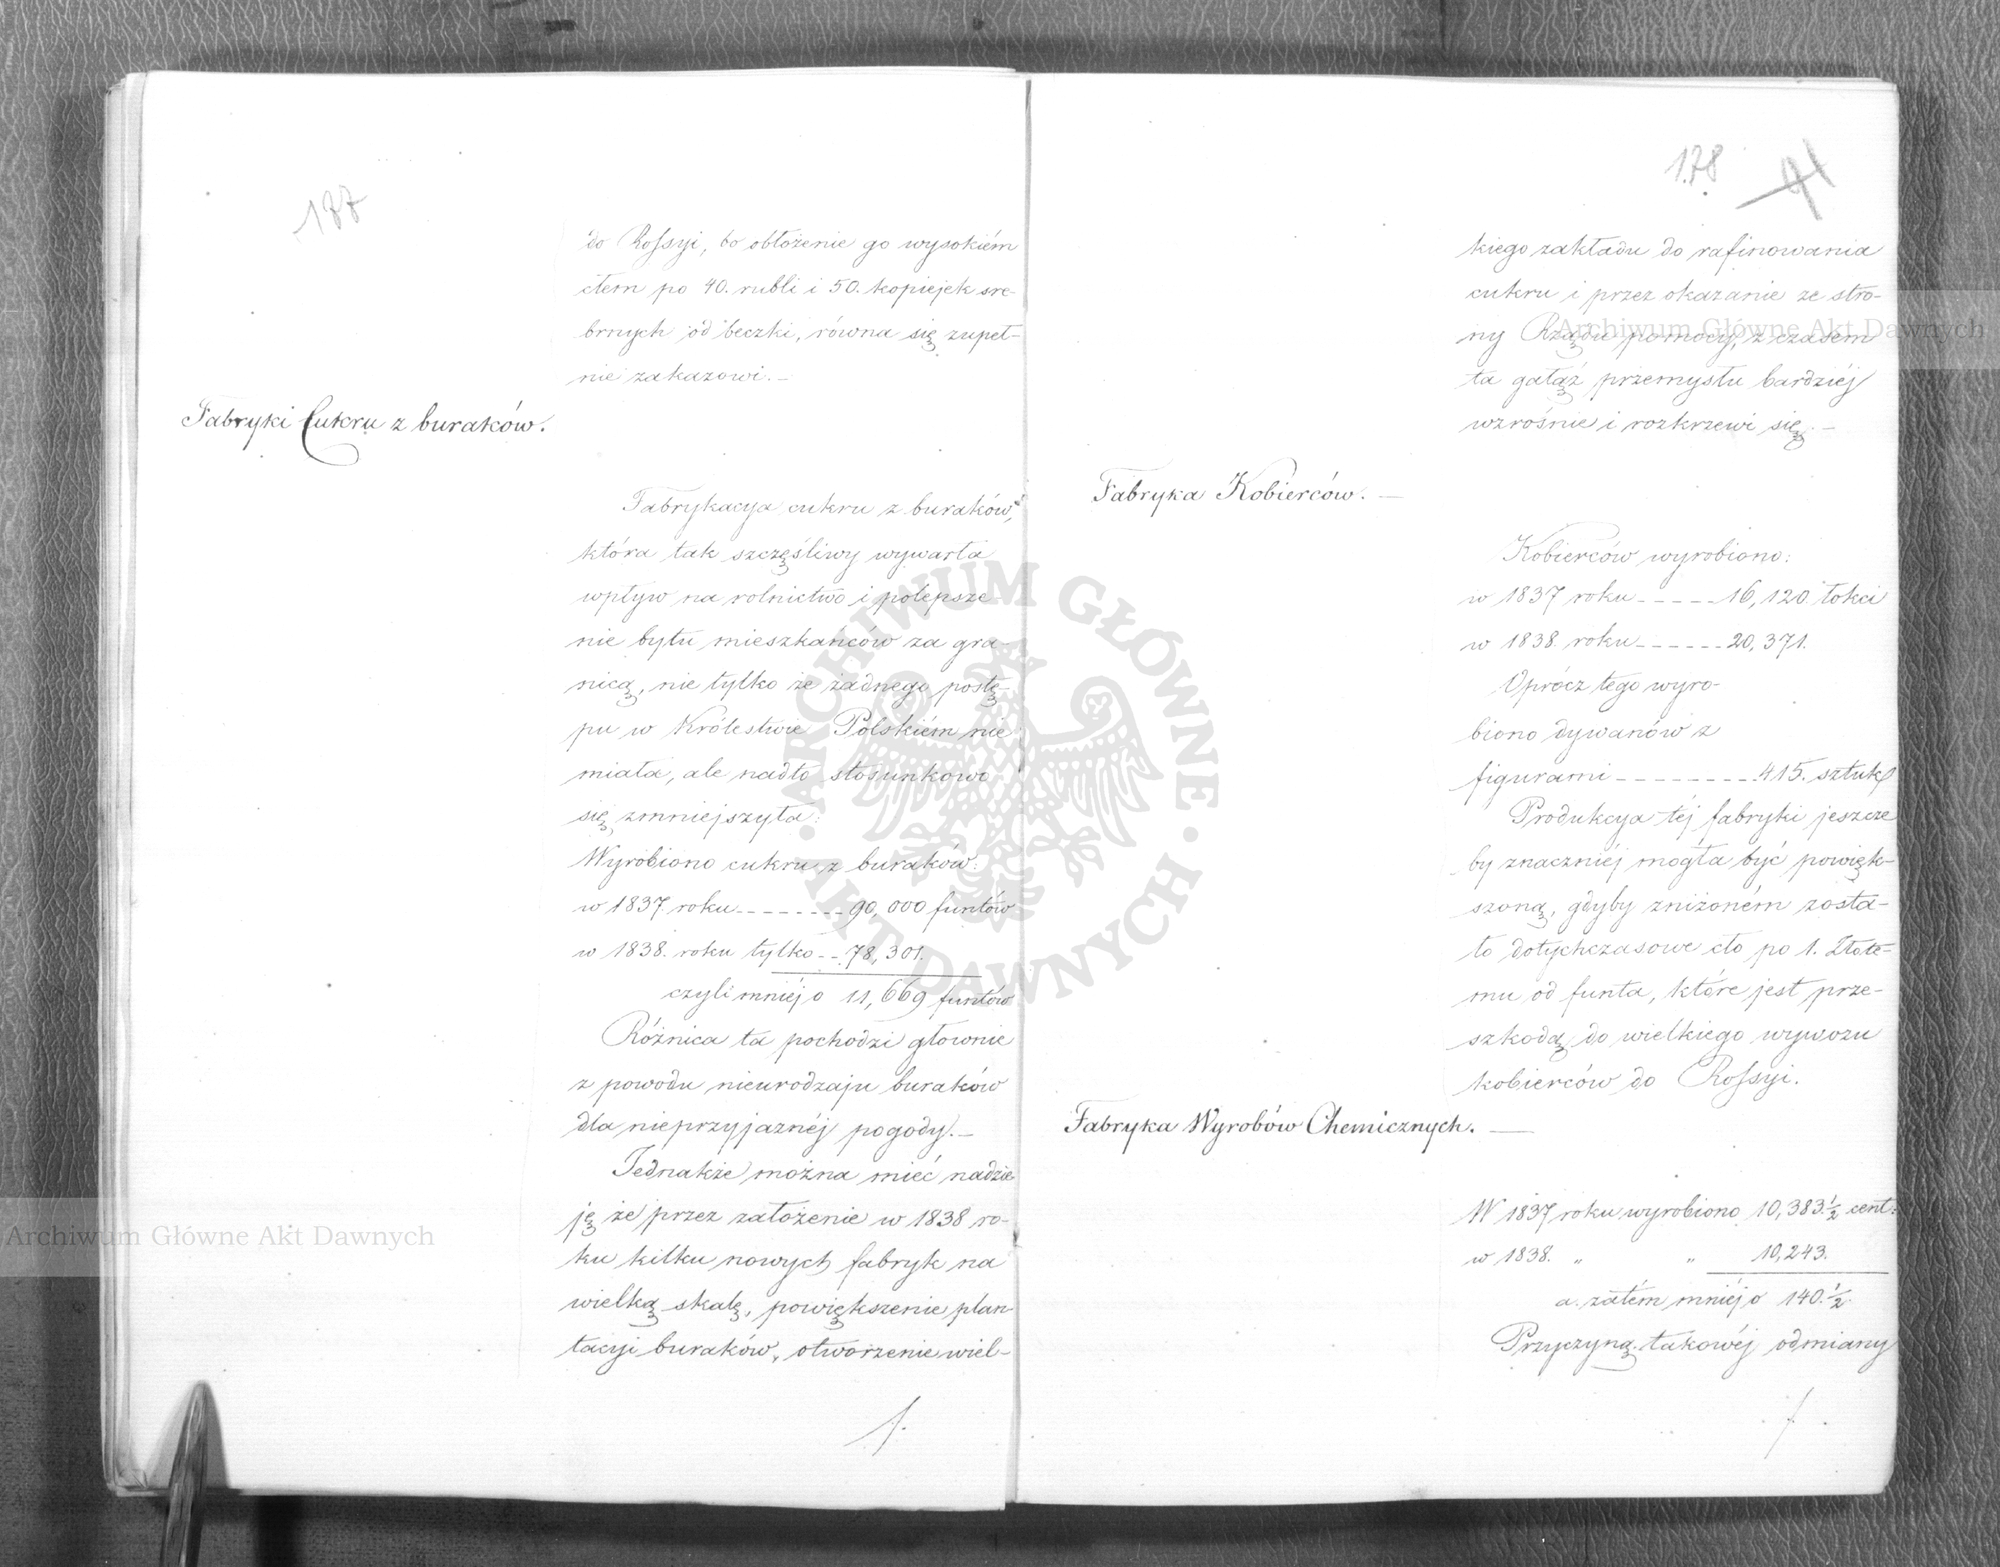 177
do Rossyi, bo obłożenie go wysokiém
cłem po 40. rubli i 50. kopiejek sre-
brnych od beczki, równa się zupeł-
nie zakazowi. —
Fabryki Cukru z buraków.
Fabrykacya cukru z buraków,
która tak szczęśliwy wywarła
wpływ na rolnictwo i polepsze-
nie bytu mieszkańców za gra-
nicą, nie tylko że żadnego postę-
pu w Królestwie Polskiém nie
miała, ale nadto stosunkowo
się zmniejszyła:
Wyrobiono cukru z buraków:
w 1837 roku - - - - - - - - 90,000 funtów
w 1838. roku tylko - - 78,301.
czyli mniéj o 11,669 funtów
Różnica ta pochodzi głownie
z powodu nieurodzaju buraków
dla nieprzyjaznéj pogody. —
Jednakże można mieć nadzie-
ję że przez założenie w 1838 ro-
ku kilku nowych fabryk na
wielką skalę, powiększenie plan-
tacyi buraków, otworzenie wiel-
178
kiego zakładu do rafinowania
cukru i przez okazanie ze stro-
ny Rządu pomocy, z czasem
ta gałąź przemysłu bardziéj
wzrośnie i rozkrzewi się. —
Fabryka Kobierców. —
Kobierców wyrobiono:
w 1837 roku - - - - - 16,120 łokci
w 1838. roku - - - - - - 20,371.
Oprócz tego wyro-
biono dywanów z
figurami - - - - - - - - - 415. sztuk
Produkcya téj fabryki jeszcze
by znaczniéj mogła być powięk-
szoną, gdyby zniżoném zosta-
ło dotychczasowe cło po 1. Złote-
mu od funta, które jest prze-
szkodą do wielkiego wywozu
kobierców do Rossyi.
Fabryka Wyrobów Chemicznych. —
W 1837 roku wyrobiono 10,383.½ cent:
w 1838. „ „ 10,243.
a zatém mniéj o 140.½
Przyczyną takowéj odmiany
Archiwum Główne Akt Dawnych
Archiwum Główne Akt Dawnych
ARCHIWUM GŁÓWNE
AKT DAWNYCH